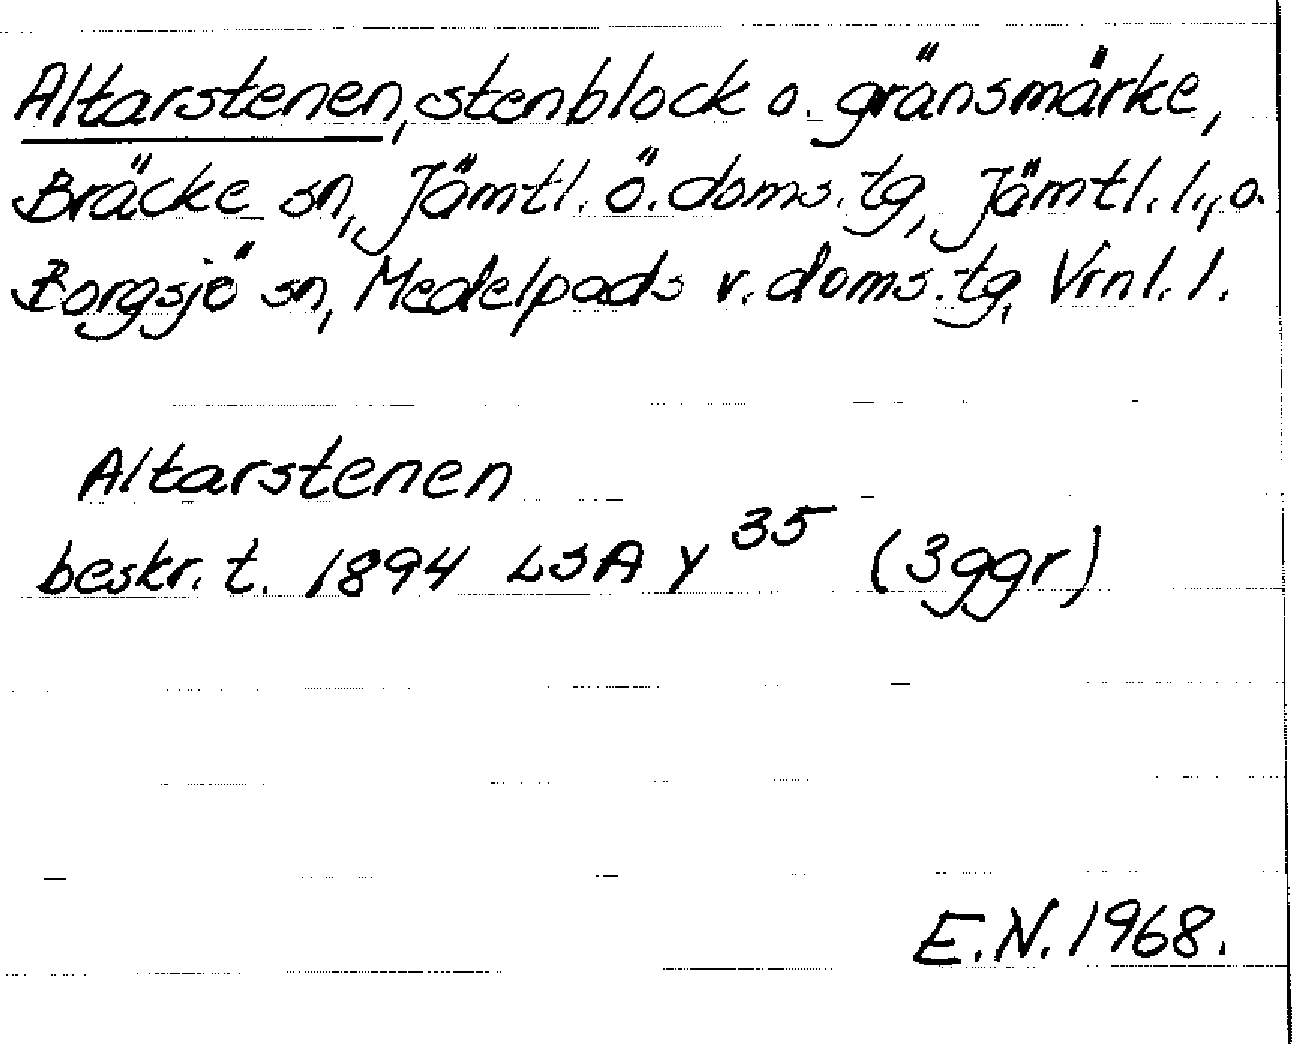 Altarstenen, stenblock o. gränsmärke,
Bräcke sn, Jämtl. ö. doms. tg, Jämtl. l., o.
Borgsjö sn, Medelpads v. doms. tg, Vrnl. l.
Altarstenen
beskr. t. 1894 LSA Y 35 (3 ggr)
E.N. 1968.